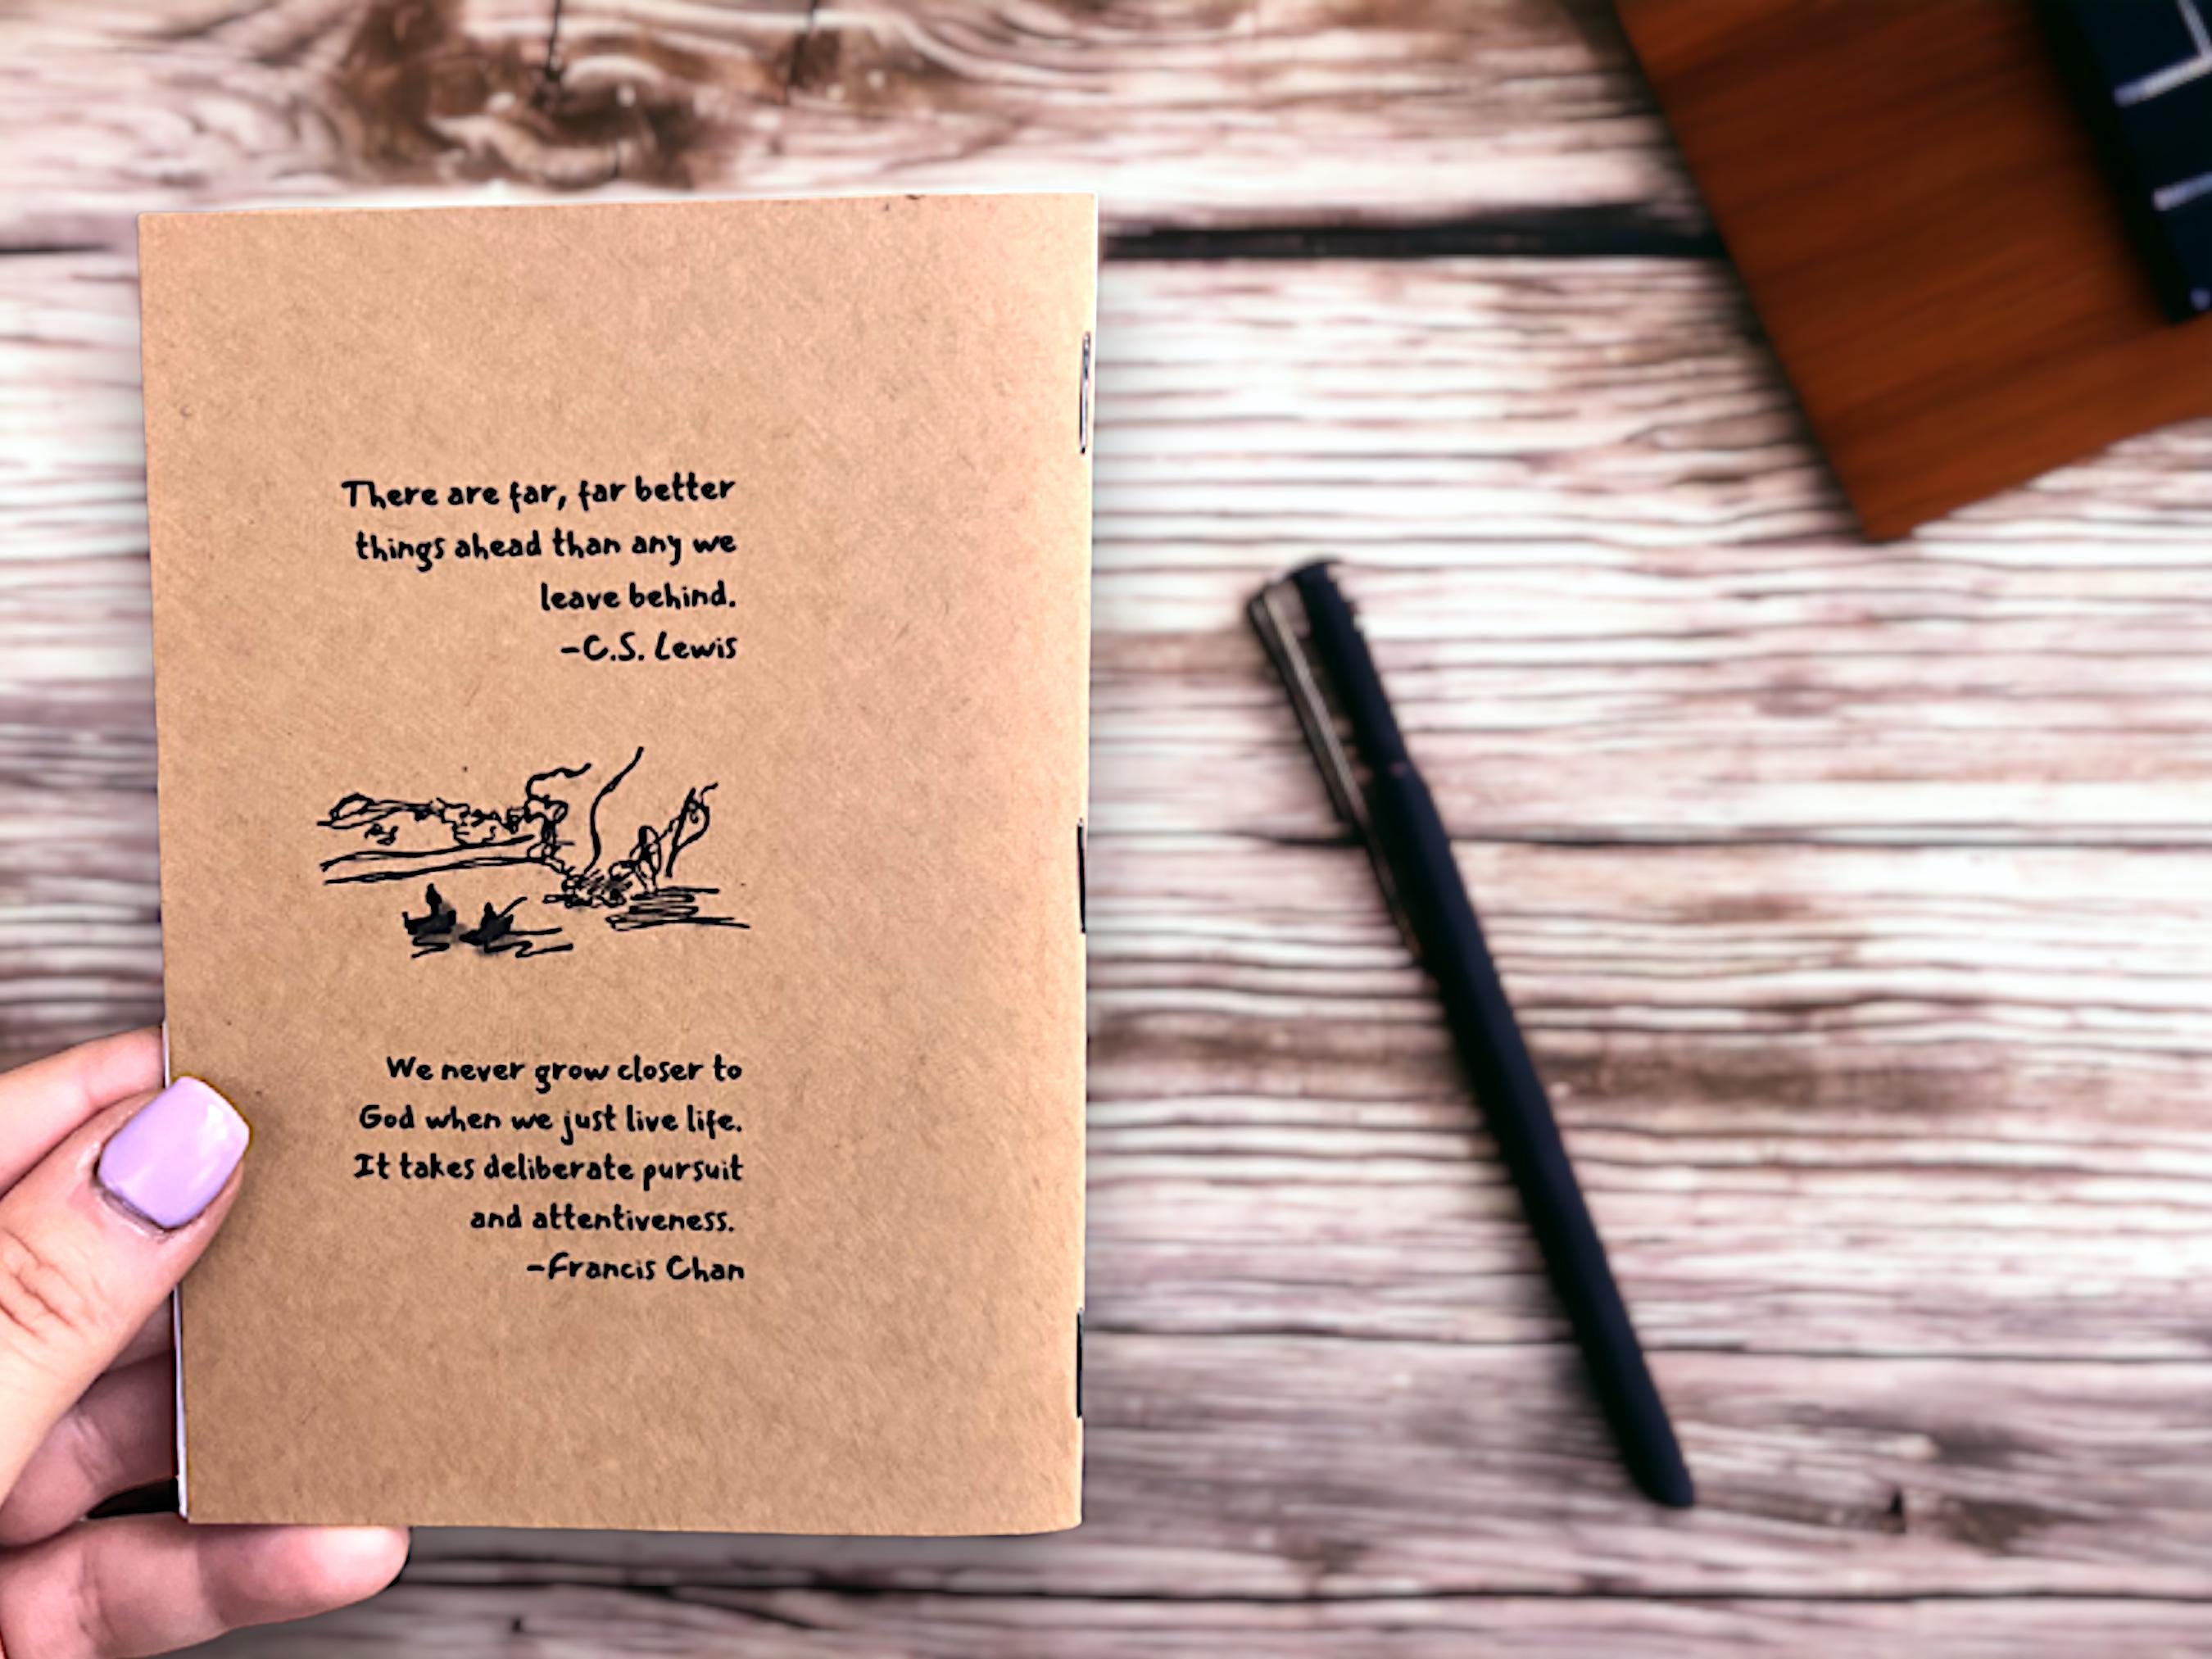 There are far, far better
things ahead than any we
leave behind.
-C.S. Lewis
We never grow closer to
God when we just live life.
It takes deliberate pursuit
and attentiveness.
-Francis Chan